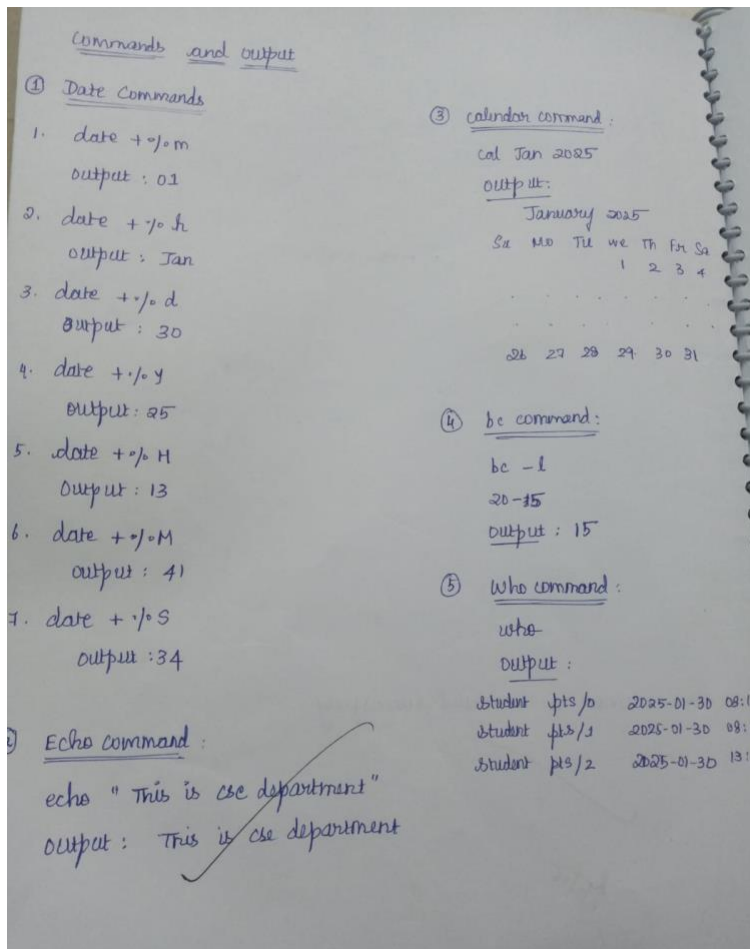 Commands and output
① Date Commands
1. date +%m
output : 01
2. date +%h
output : Jan
3. date +%d
output : 30
4. date +%y
output : 25
5. date +%H
output : 13
6. date +%M
output : 41
7. date +%S
output : 34
Echo command :
echo " This is cse department"
output : This is cse department
③ calendar command :
cal Jan 2025
output :
January 2025
Su Mo Tu We Th Fr Sa
1 2 3 4
. . . . . . .
. . . . . . .
26 27 28 29 30 31
④ bc command :
bc -l
20-15
output : 15
⑤ Who command :
who
output :
student pts/0 2025-01-30 08:
student pts/1 2025-01-30 08:
student pts/2 2025-01-30 13: